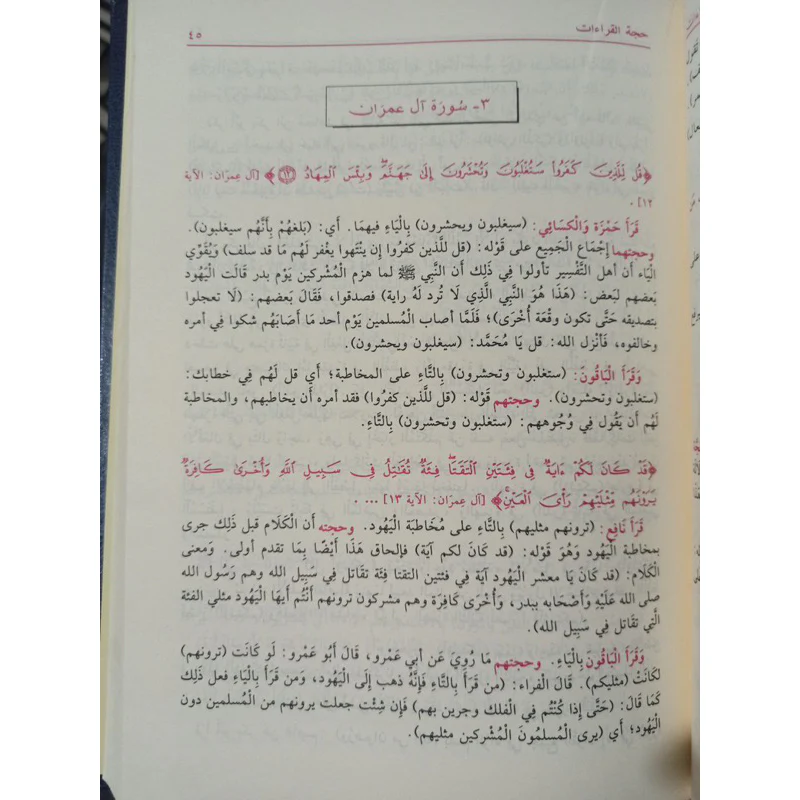 حجة القراءات ٤٥
٣- سُورَة آل عمرَان
﴿قُل لِّلَّذِينَ كَفَرُوا۟ سَتُغْلَبُونَ وَتُحْشَرُونَ إِلَىٰ جَهَنَّمَ ۚ وَبِئْسَ ٱلْمِهَادُ ﴿١٢﴾﴾ [آل عِمرَان: الآية
١٢] .
قَرَأَ حَمْزَة وَالْكسَائِي: (سيغلبون ويحشرون) بِالْيَاءِ فيهمَا. أي: (بَلغهُمْ بِأَنَّهُم سيغلبون).
وحجتهما إِجْمَاع الْجَمِيع على قَوْله: (قل للَّذين كفرُوا إِن ينْتَهوا يغْفر لَهُم مَا قد سلف) وَيُقَوِّي
الْيَاء أَن أهل التَّفْسِير تأولوا فِي ذَلِك أَن النَّبِي ﷺ لما هزم الْمُشْركين يَوْم بدر قَالَت الْيَهُود
بَعضهم لبَعض: (هَذَا هُوَ النَّبِي الَّذِي لَا تُرد لَهُ راية) فصدقوا، فَقَالَ بَعضهم: (لَا تعجلوا
بتصديقه حَتَّى تكون وقْعَة أُخْرَى)؛ فَلَمَّا أصَاب الْمُسلمين يَوْم أحد مَا أَصَابَهُم شكوا فِي أمره
وخالفوه، فَأنْزل الله: قل يَا مُحَمَّد: (سيغلبون ويحشرون).
وَقَرَأَ الْبَاقُونَ: (ستغلبون وتحشرون) بِالتَّاءِ على المخاطبة؛ أي قل لَهُم فِي خطابك:
(ستغلبون وتحشرون). وحجتهم قَوْله: (قل للَّذين كفرُوا) فقد أمره أَن يخاطبهم، والمخاطبة
لَهُم أَن يَقُول فِي وُجُوههم: (ستغلبون وتحشرون) بِالتَّاءِ.
﴿قَدْ كَانَ لَكُمْ ءَايَةٌ فِى فِئَتَيْنِ ٱلْتَقَتَا ۖ فِئَةٌ تُقَٰتِلُ فِى سَبِيلِ ٱللَّهِ وَأُخْرَىٰ كَافِرَةٌ
يَرَوْنَهُم مِّثْلَيْهِمْ رَأْىَ ٱلْعَيْنِ ۚ﴾ [آل عِمرَان: الآية ١٣] ... .
قَرَأَ نَافِع: (ترونهم مثليهم) بِالتَّاءِ على مُخَاطبَة الْيَهُود. وحجته أَن الْكَلَام قبل ذَلِك جرى
بمخاطبة الْيَهُود وَهُوَ قَوْله: (قد كَانَ لكم آيَة) فإلحاق هَذَا أَيْضًا بِمَا تقدم أولى. وَمعنى
الْكَلَام: (قد كَانَ يَا معشر الْيَهُود آيَة فِي فئتين التقتا فِئَة تقَاتل فِي سَبِيل الله وهم رَسُول الله
صلى الله عَلَيْهِ وَأَصْحَابه ببدر، وَأُخْرَى كَافِرَة وهم مشركون ترونهم أَنْتُم أَيهَا الْيَهُود مثلي الفئة
الَّتِي تقَاتل فِي سَبِيل الله).
وَقَرَأَ الْبَاقُونَ بِالْيَاءِ. وحجتهم مَا رُوِيَ عَن أبي عَمْرو، قَالَ أَبُو عَمْرو: لَو كَانَت (ترونهم)
لكَانَتْ (مثليكم). قَالَ الْفراء: (من قَرَأَ بِالتَّاءِ فَإِنَّهُ ذهب إِلَى الْيَهُود، وَمن قَرَأَ بِالْيَاءِ فعل ذَلِك
كَمَا قَالَ: (حَتَّى إِذا كُنْتُم فِي الْفلك وجرين بهم) فَإِن شِئْت جعلت يرونهم من الْمُسلمين دون
الْيَهُود؛ أي (يرى الْمُسلمُونَ الْمُشْركين مثليهم).